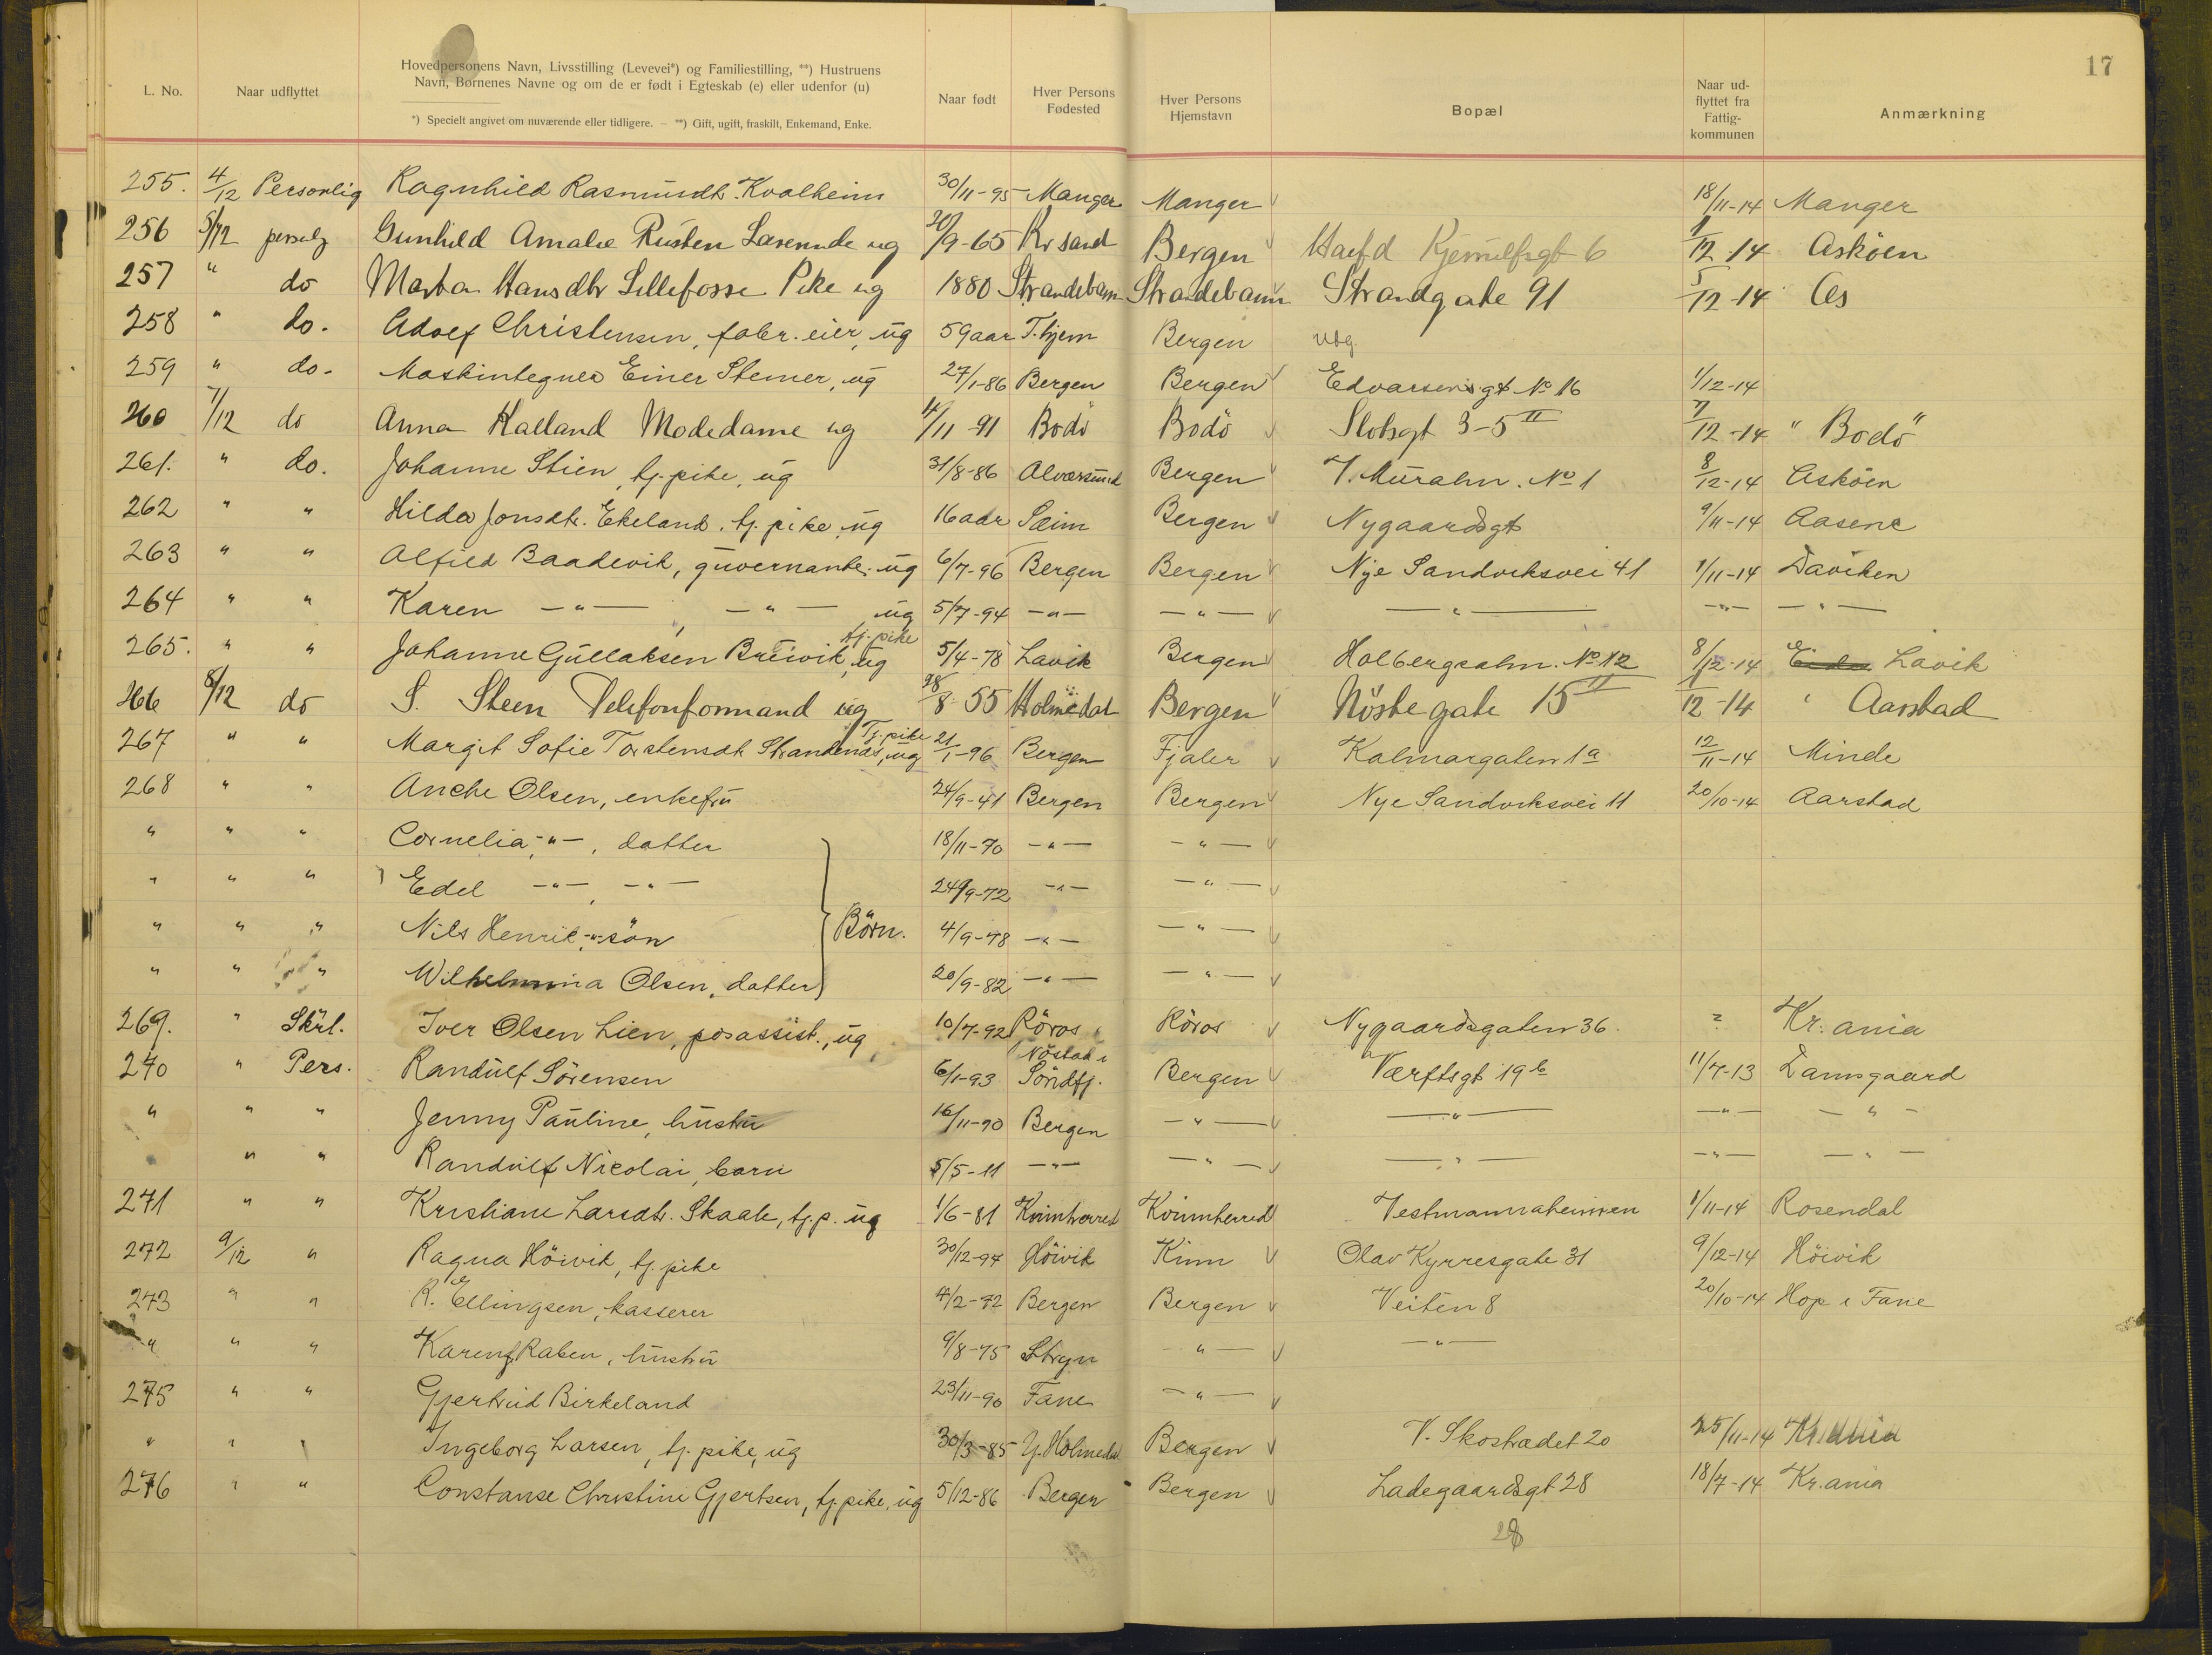 17
L. No. Naar udflyttet Hovedpersonens Navn, Livsstilling (Levevei*) og Familiestilling, **) Hustruens Navn, Børnenes Navne og om de er født i Egteskab (e) eller udenfor (u) Naar født Hver Persons Fødested Hver Persons Hjemstavn Bopæl Naar udflyttet fra Fattigkommunen Anmærkning
*) Specielt angivet om nuværende eller tidligere. — **) Gift, ugift, fraskilt, Enkemand, Enke.
255. 4/12 Personlig Ragnhild Rasmusdtr. Kvalheim 30/11-95 Manger Manger 18/11-14 Manger
256 5/12 personlg Gunhild Amalie Rusten ug 20/9-65 Kr sand Bergen 6 1/12 14 Askøen
257 " do Marta Hansdtr Lillefosse Pike ug 1880 Strandebarm Strandebarm Strandgate 91 5/12-14 Os
258 " do. Adolf Christensen, fabr. eier, ug 59 aar T.hjem Bergen Ubg.
259 " do. Maskintegner Einer Stener, ug 27/1-86 Bergen Bergen Edvarsensgt No 16 1/12-14
260 7/12 do Anna Halland Modedame ug 14/11 91 Bodö Bodö Slotsgt 3-5 II 7/12-14 " Bodö "
261. " do. Johanne Stien, tj. pike, ug 31/8-86 Alversund Bergen V. Muralm. No 1 8/12-14 Askøen
262 " " Hilda Jonsdtr. Ekeland. tj. pike, ug 16 aar Sæim Bergen Nygaardsgt 9/11-14 Aasene
263 " " Alfild Baadevik, guvernante, ug 6/7-96 Bergen Bergen Nye Sandviksvei 41 1/11-14 Daviken
264 " " Karen — " — , — " — ug 5/7-94 — " — — " — — " — — " — — " —
265. " " Johanne Gullaksen Breivik, tj. pike ug 5/4-78 Lavik Bergen Holbergsalm. No 12 8/12-14 Lavik
266 8/12 do S. Steen Telefonformand ug 28/8 55 Holmedal Bergen Nöstegate 15 II 1/12-14 " Aarstad
267 " " Margit Sofie Torstensdt Strandenæs, Tj. pike ug 21/1-96 Bergen Fjaler Kalmargaten 1a 12/11-14 Minde
268 " " Anche Olsen, enkefru 24/9-41 Bergen Bergen Nye Sandviksvei 11 20/10-14 Aarstad
" " " Cornelia — " —, datter 18/11-70 — " — — " —
" " " Edel — " —, — " — 24/9-72 — " — — " —
" " " Nils Henrik, " sön Börn. 4/9-78 — " — — " —
" " " Wilhelmina Olsen, datter 20/9-82 — " — — " —
269. " Skrl. Iver Olsen Lien, posassist., ug 10/7-92 Röros Röros Nygaardsgaten 36. ? Kr.ania
270 " Pers. Randulf Sörensen 6/1-93 Nöstad i Söndfj. Bergen Værftsgt 19b 11/7-13 Damsgaard
" " " Jenny Pauline, hustru 16/11-90 Bergen — " — — " — — " — — " —
" " " Randulf Nicolai, barn 5/5-11 — " — — " — — " — — " — — " —
271 " " Kristiane Larsdtr. Skaale, tj. p. ug 1/6-81 Kvinnherred Kvinnherred Vestmannaheimen 1/11-14 Rosendal
272 9/12 " Ragna Höivik, tj. pike 30/12-94 Höivik Kinn Olav Kyrresgate 31 9/12-14 Höivik
273 " " R. Ellingsen, kasserer 4/2-72 Bergen Bergen Veiten 8 20/10-14 Hop i Fane
" " " Karen Raben, hustru 9/8-75 Stryn — " — — " —
275 " " Gjertrud Birkeland 23/11-90 Fane — " —
" " " Ingeborg Larsen, tj. pike, ug 30/3-85 Y. Holmedal Bergen V. Skostrædet 20 25/11-14 Kr.ania
276 " " Constanse Christine Gjertsen, tj. pike, ug 5/12-86 Bergen Bergen Ladegaardsgt 28 18/7-14 Kr.ania
28